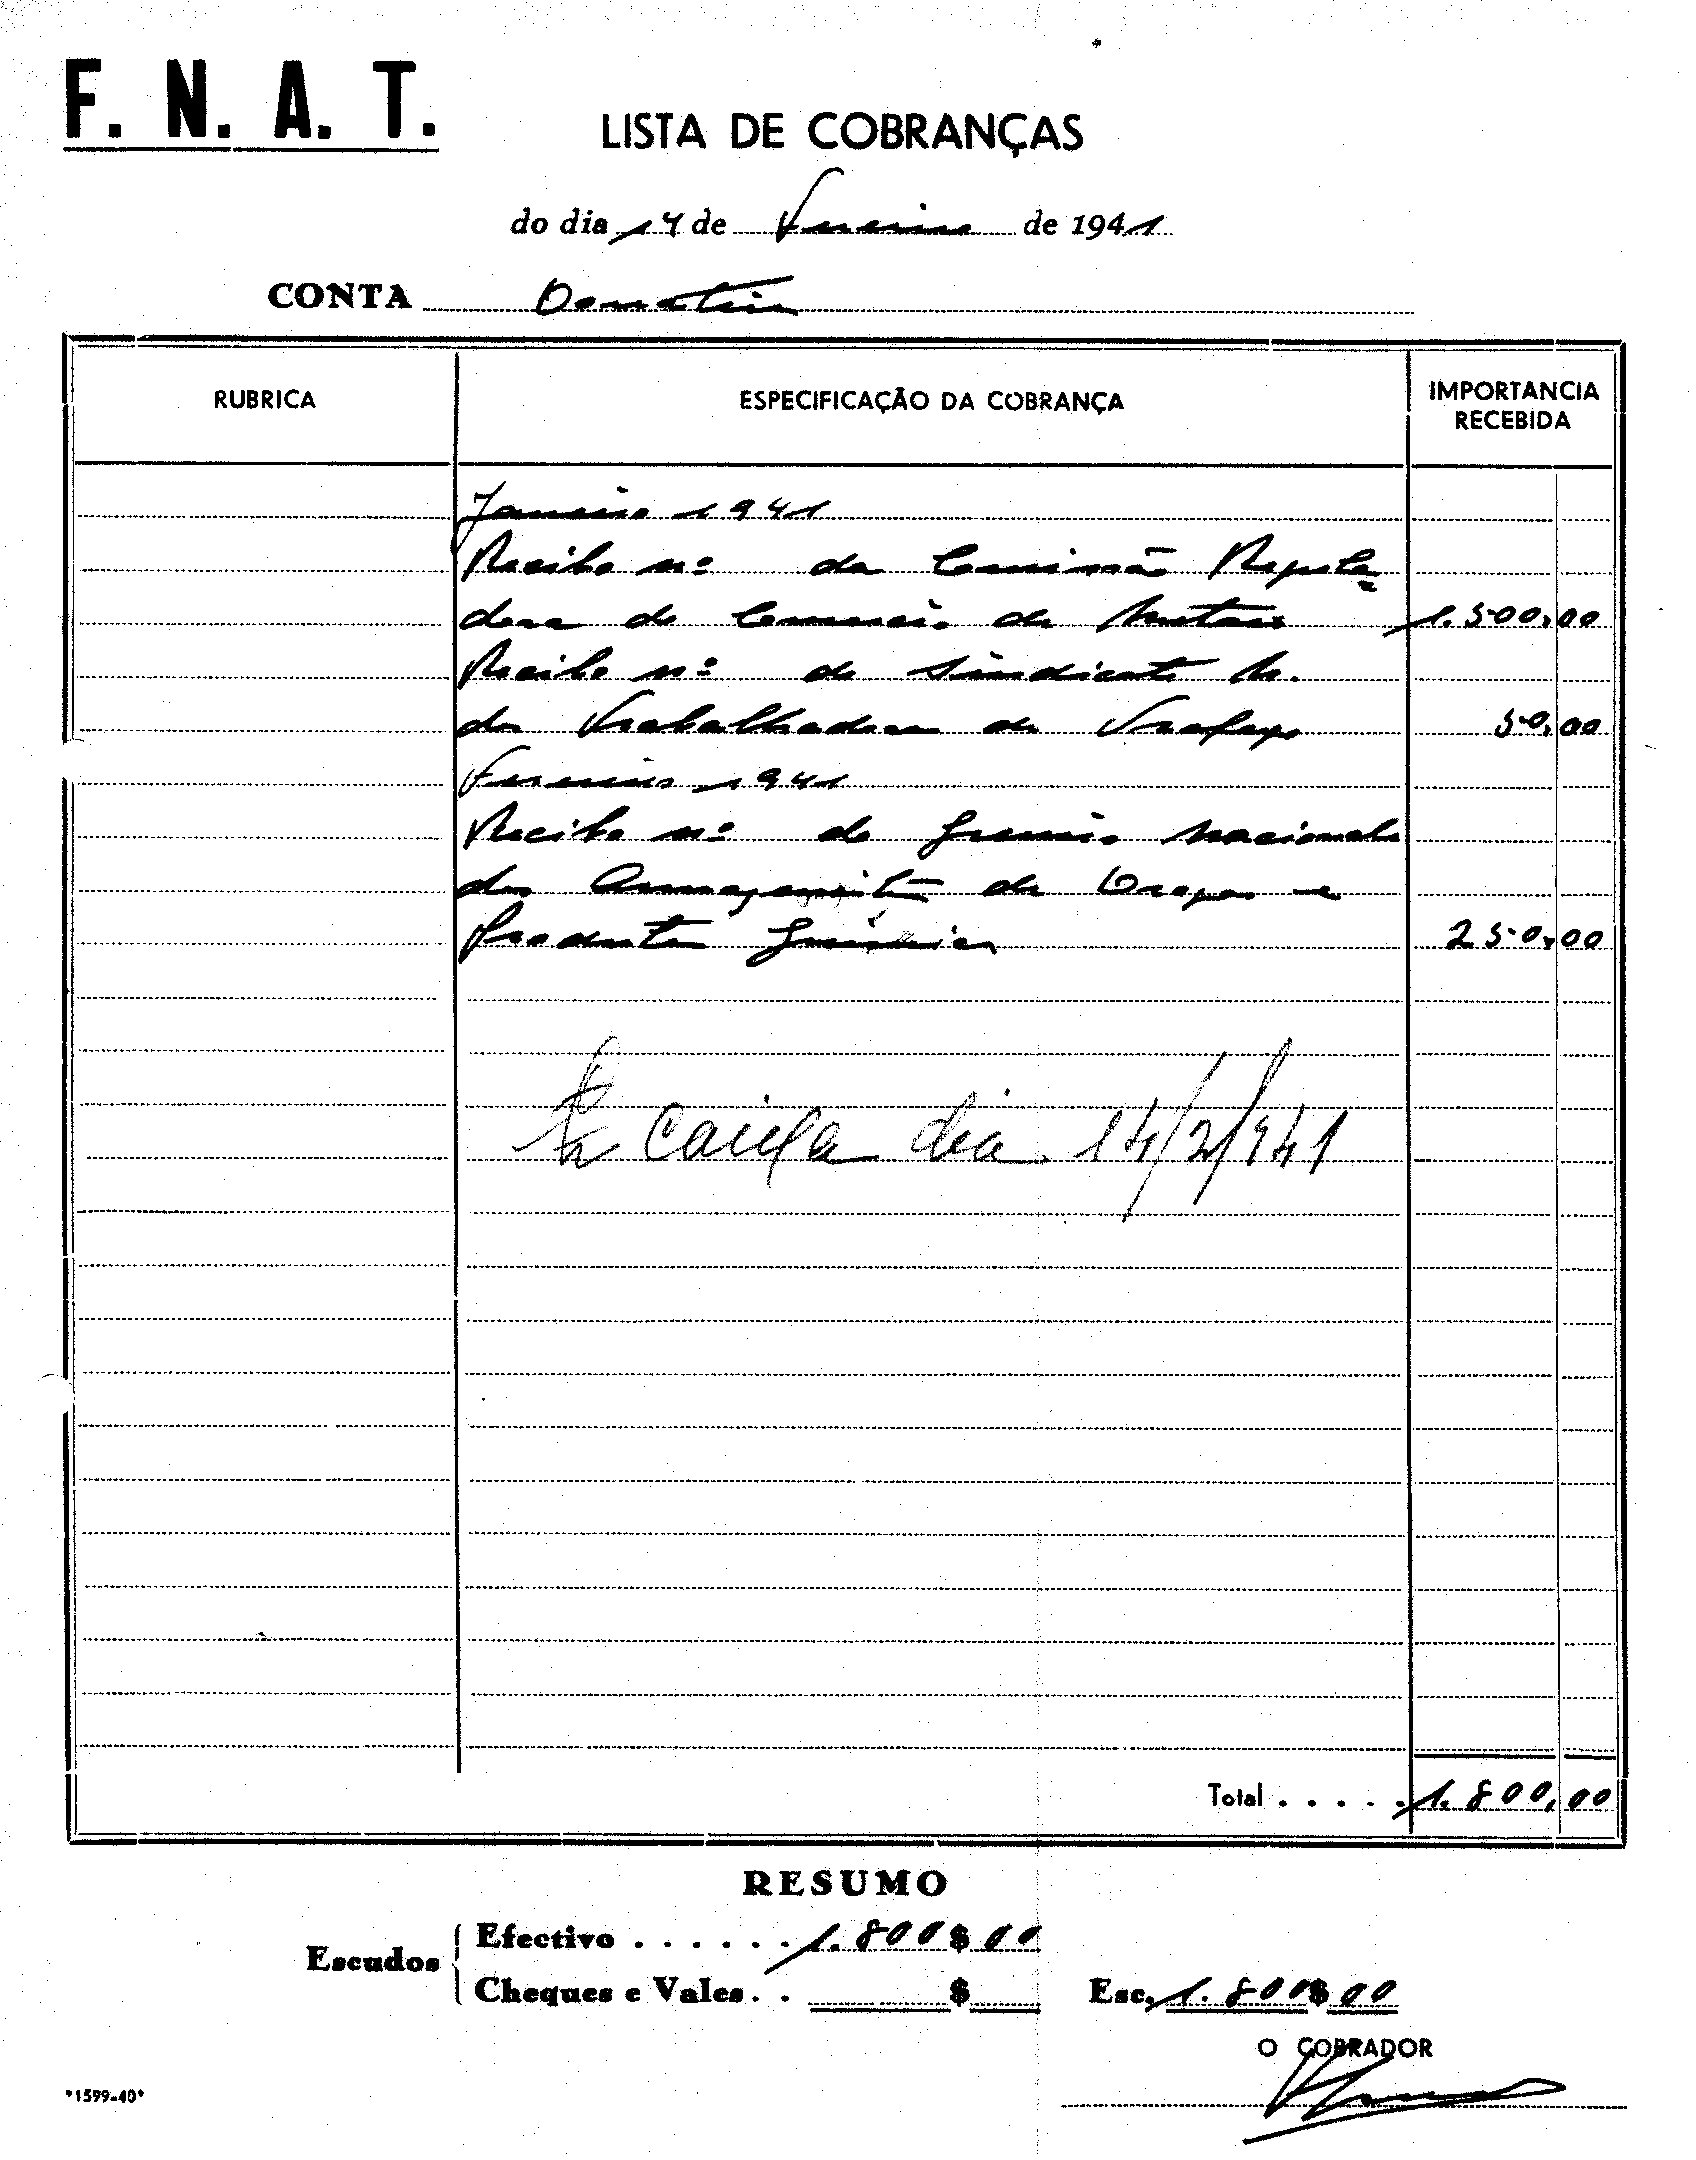 F. N. A. T.
LISTA DE COBRANÇAS
do dia 14 de Fevereiro de 1941
CONTA Donativos
RUBRICA ESPECIFICAÇÃO DA COBRANÇA IMPORTANCIA RECEBIDA
Janeiro 1941
Recibo nº da Comissão Regula-
dora do Comercio de Metais 1.500,00
Recibo nº do Sindicato N.
dos Trabalhadores do Trafego 50,00
Fevereiro 1941
Recibo nº do Gremio Nacional
dos Armazenistas de Drogas e
Produtos Quimicos 250,00
Caixa dia 14/2/941
Total . . . . . 1.800,00
RESUMO
Escudos
Efectivo . . . . . . 1.800$00
Cheques e Vales . . $
Esc. 1.800$00
O COBRADOR
*1599-40*